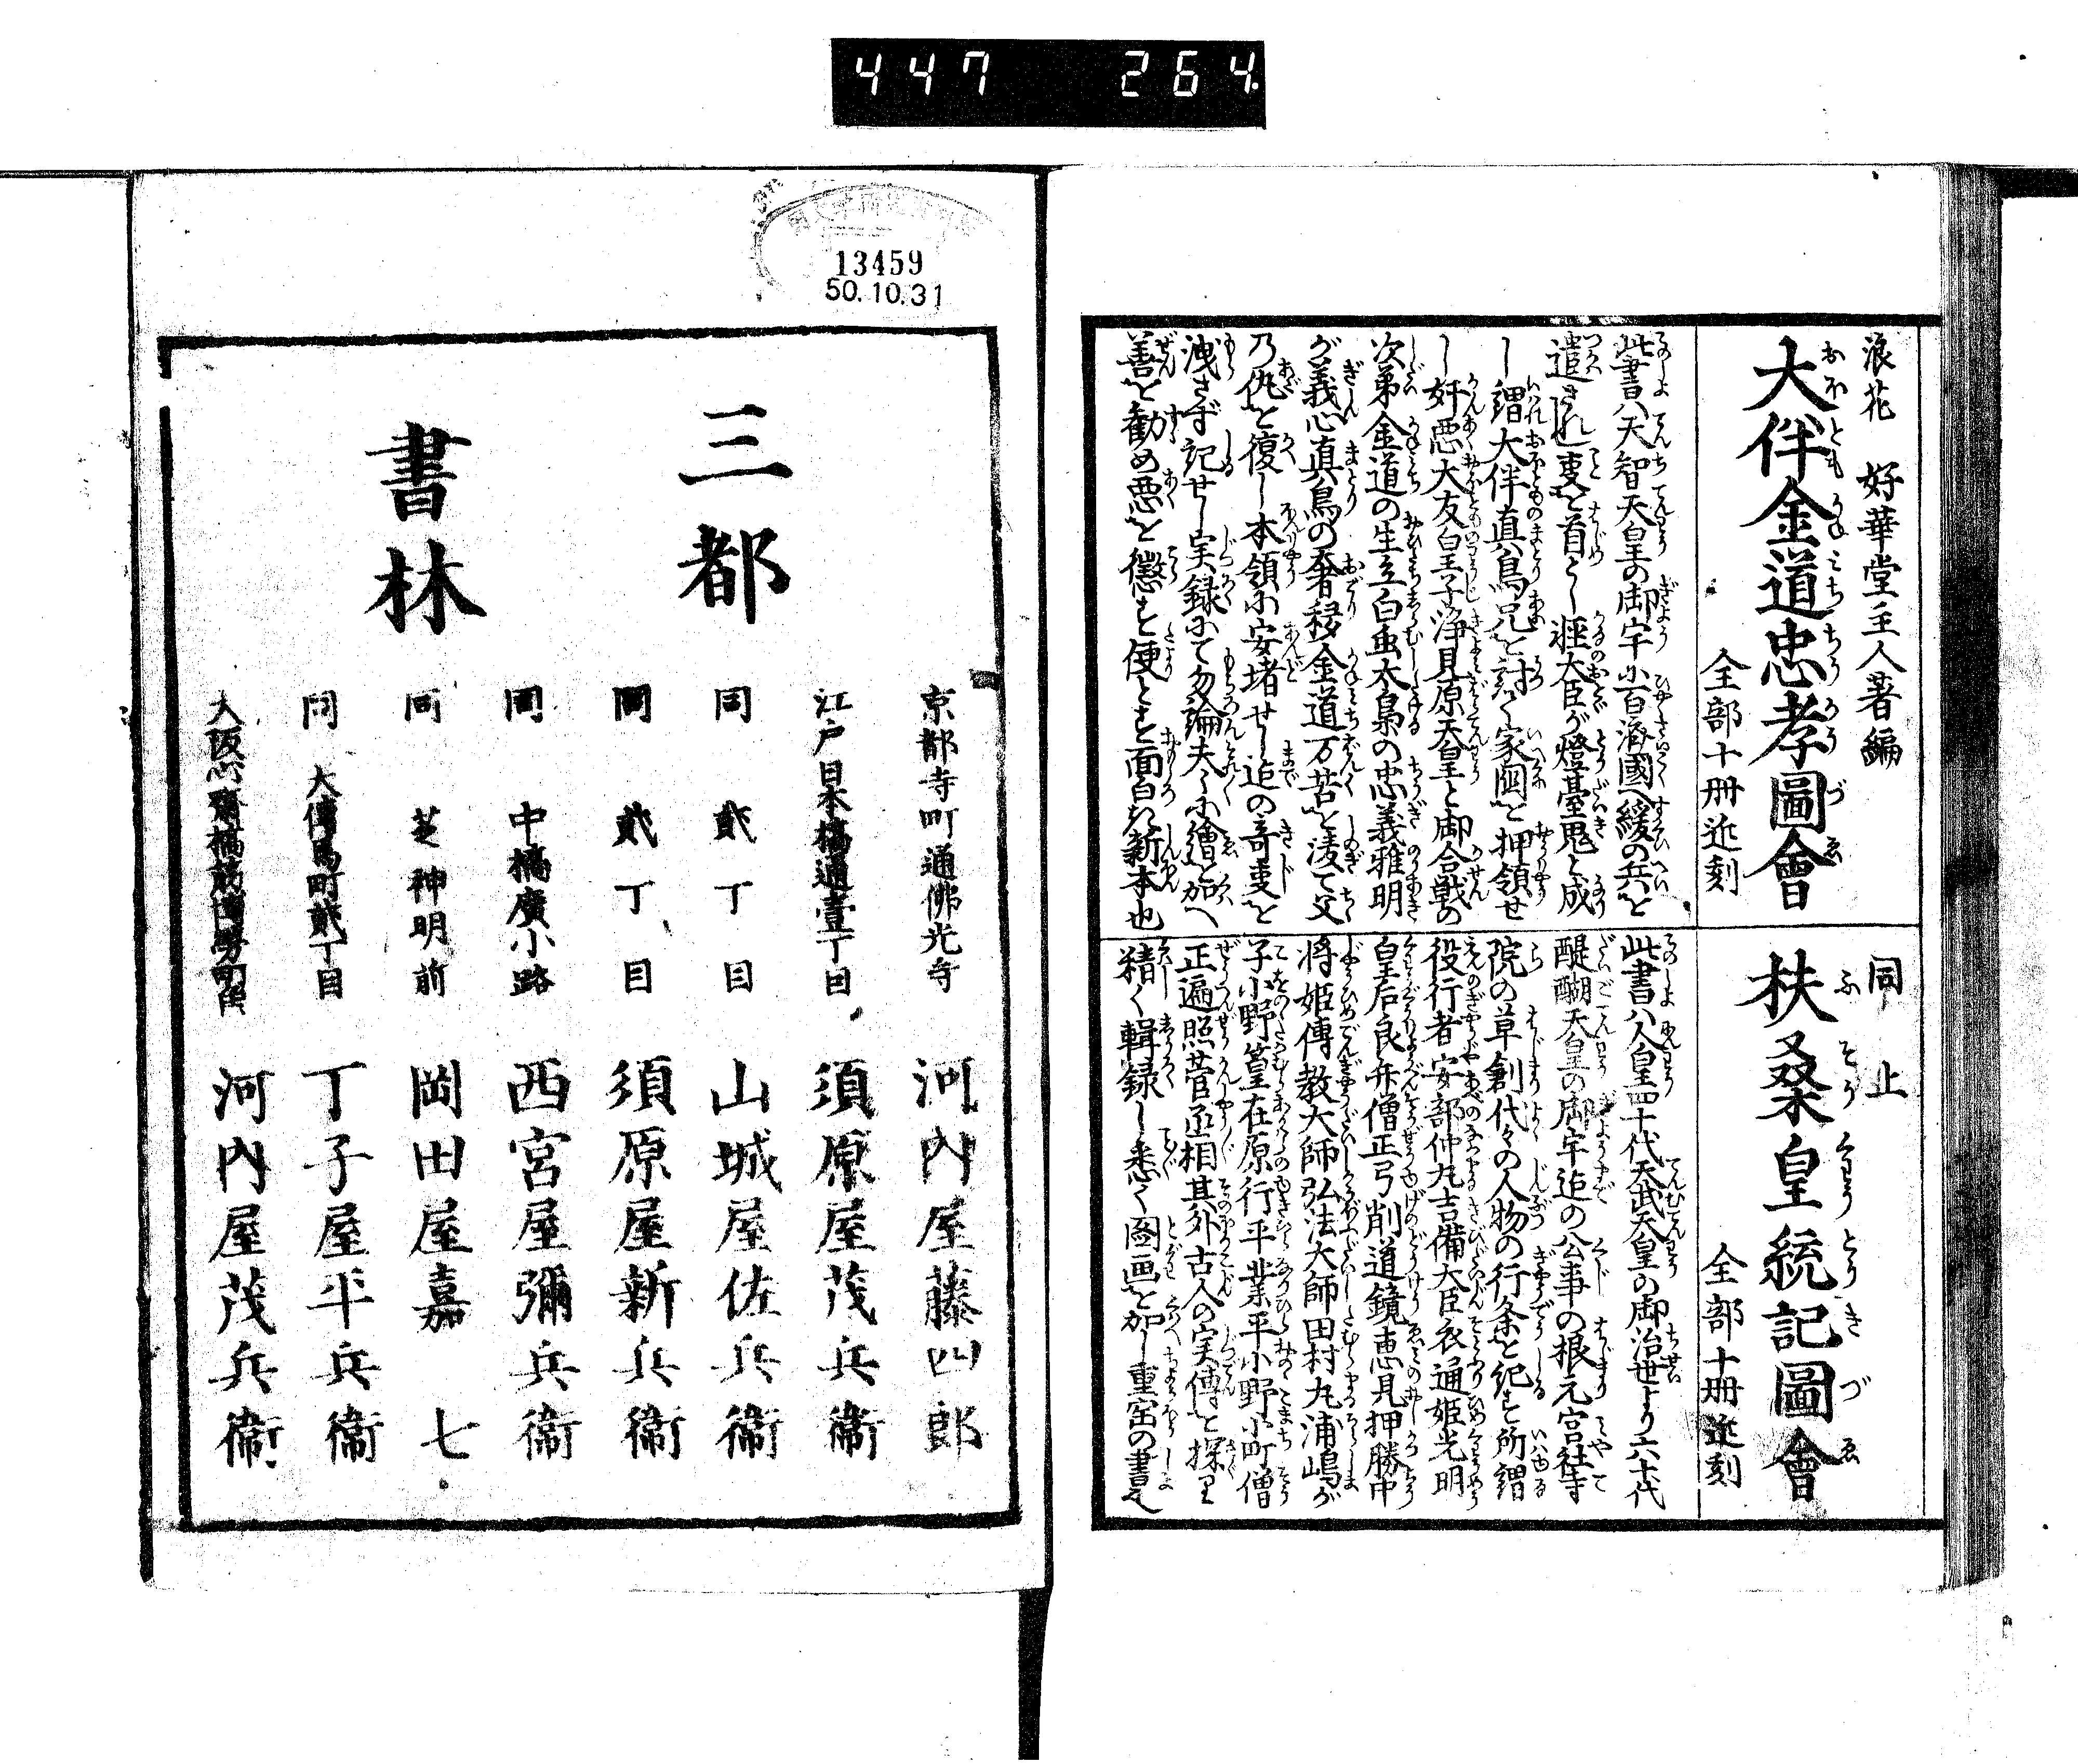 447 264
浪花 好華堂主人著編
大伴金道忠孝圖會
おほともかねみちちうかうづゑ
全部十冊近刻
此書ハ天智天皇の御宇に百済國へ援の兵を
遣されし事を首とし迋大臣が燈臺鬼と成
し謂大伴真鳥兄を討て家國を押領せ
し奸悪大友皇子浄見原天皇と御合戦の
次第金道の生立白虫太梟の忠義雅明
が義心真鳥の奢移金道万苦を凌て父
乃仇を復し本領に安堵せし迄の奇事を
洩さず記せし実録にて勿論夫々に繪を加へ
善を勧め悪を懲す便とす面白き新本也
同上
扶桑皇統記圖會
ふそうくわうとうきづゑ
全部十冊近刻
此書ハ人皇四十代天武天皇の御治世より六十代
醍醐天皇の御宇迄の公事の根元宮社寺
院の草創代々の人物の行条を紀す所謂
役行者安部仲丸吉備大臣衣通姫光明
皇后良弁僧正弓削道鏡恵見押勝中
将姫傳教大師弘法大師田村丸浦嶋が
子小野篁在原行平業平小野小町僧
正遍照菅丞相其外古人の実傳を探り
精く輯録し悉く圖画を加し重宝の書也
13459
50.10.31
三都
書林
京都寺町通佛光寺 河内屋藤四郎
江戸日本橋通壹丁目 須原屋茂兵衛
同 貳丁目 山城屋佐兵衛
同 貳丁目 須原屋新兵衛
同 中橋廣小路 西宮屋彌兵衛
同 芝神明前 岡田屋嘉七
同 大傳馬町貳丁目 丁子屋平兵衛
大阪心齋橋筋博勞町角 河内屋茂兵衛